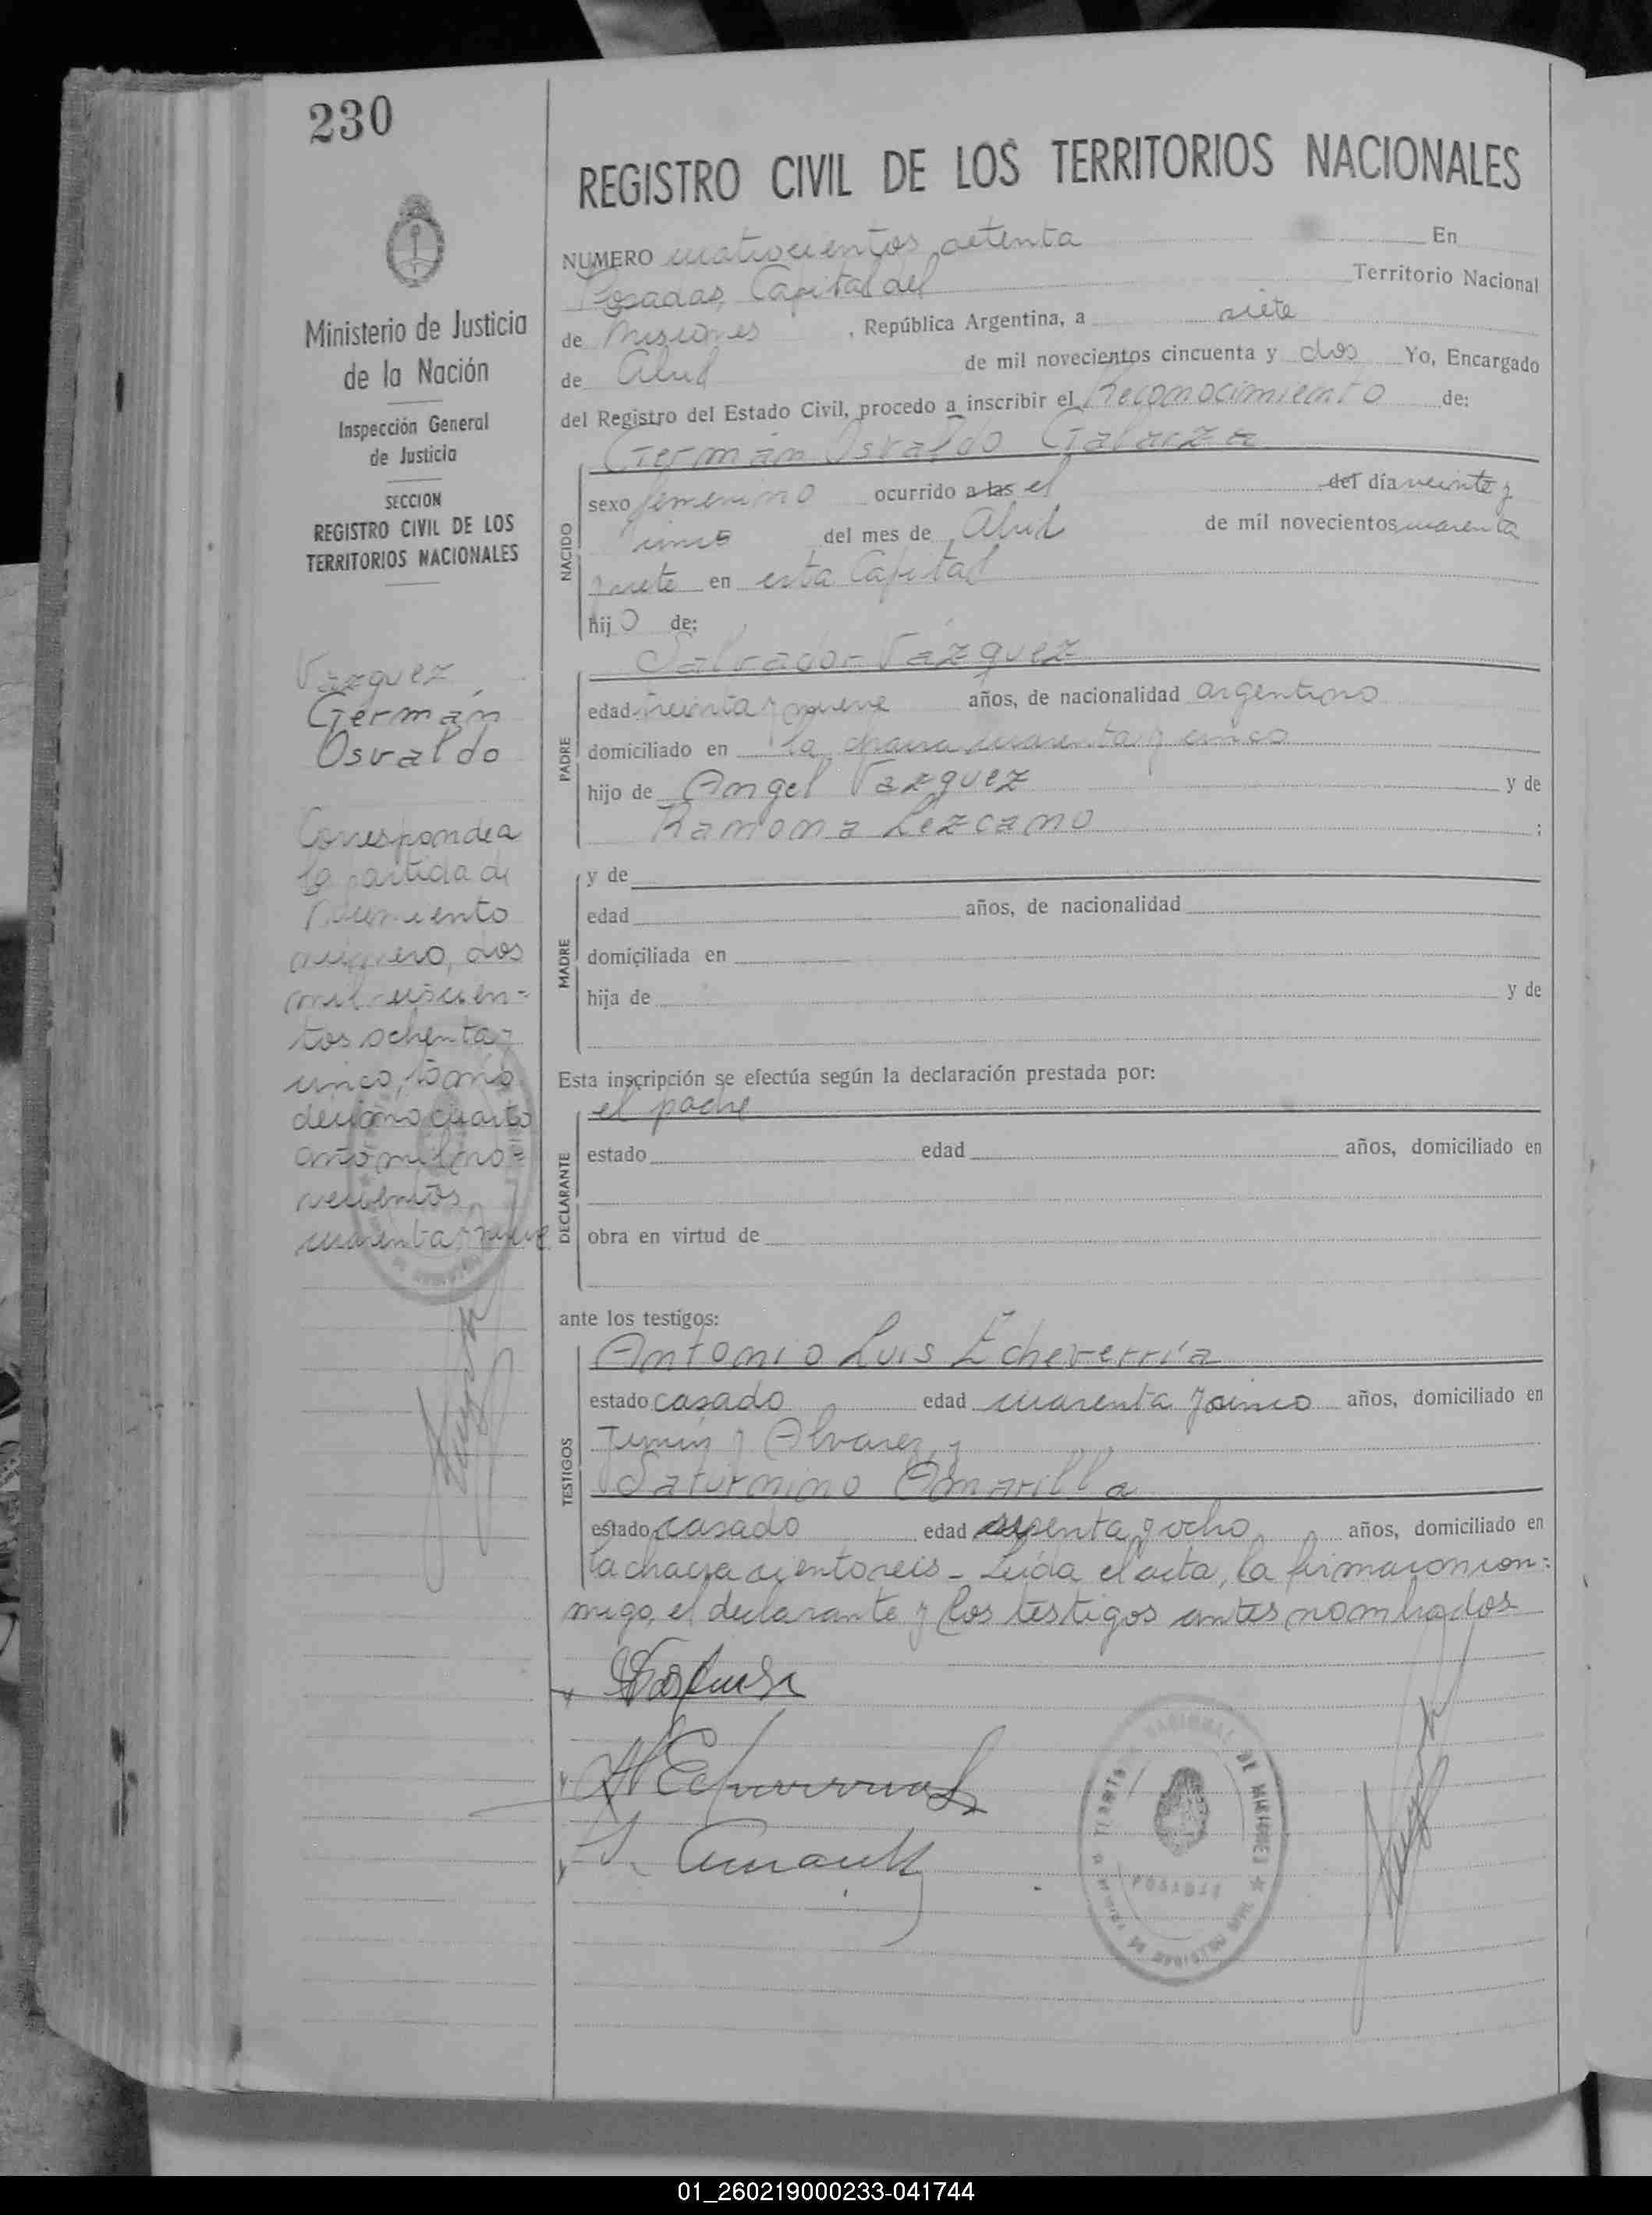 230
REGISTRO CIVIL DE LOS TERRITORIOS NACIONALES
NUMERO cuatrocientos setenta En
Posadas, Capital del Territorio Nacional
de Misiones , República Argentina, a siete
de Abril de mil novecientos cincuenta y dos Yo, Encargado
del Registro del Estado Civil, procedo a inscribir el Reconocimiento de:
Germán Osvaldo Galarza
NACIDO
sexo femenino ocurrido a las el del día veinte y
cinco del mes de Abril de mil novecientos cuarenta
y siete en esta Capital
hijo de:
PADRE
Salvador Vázquez
edad treinta y nueve años, de nacionalidad argentino
domiciliado en la chacra cuarenta y cinco
hijo de Angel Vazquez y de
Ramona Lezcano ;
MADRE
y de
edad años, de nacionalidad
domiciliada en
hija de y de
Esta inscripción se efectúa según la declaración prestada por:
el padre
DECLARANTE
estado edad años, domiciliado en
obra en virtud de
ante los testigos:
TESTIGOS
Antonio Luis Echeverría
estado casado edad cuarenta y cinco años, domiciliado en
Junín y Alvarez, y
Saturnino Amarilla
estado casado edad y ocho años, domiciliado en
la chacra ciento seis - Leída el acta, la firmaron con=
migo, el declarante y los testigos antes nombrados
Ministerio de Justicia
de la Nación
Inspección General
de Justicia
SECCION
REGISTRO CIVIL DE LOS
TERRITORIOS NACIONALES
Vazquez
Germán
Osvaldo
Corresponde a
la partida de
nacimiento
número, dos
mil seiscien=
tos ochenta y
cinco, tomo
décimo cuarto
año mil no=
vecientos
cuarenta y nueve
POSADAS
01_260219000233-041744